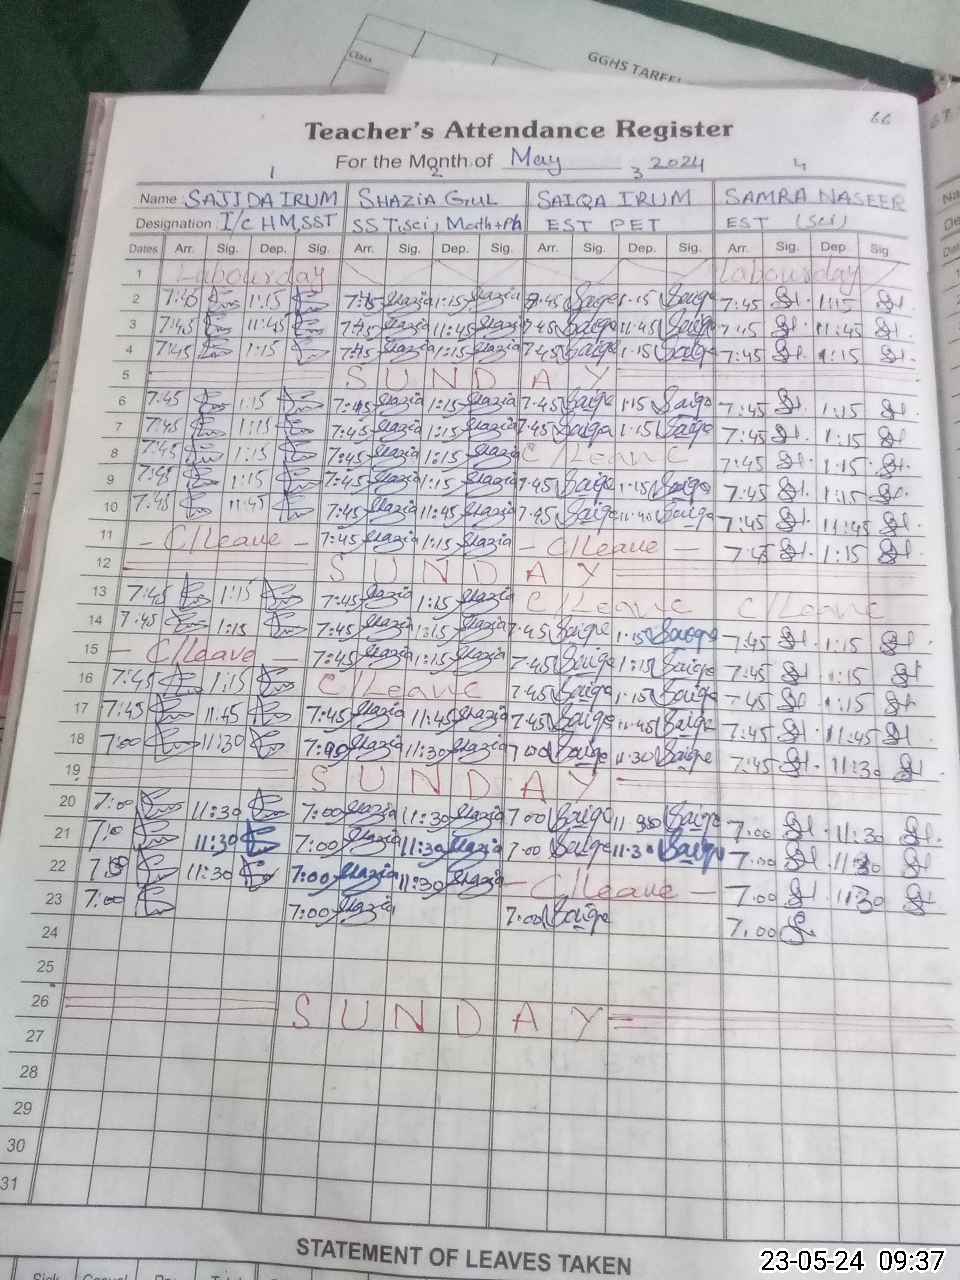 Class
GGHS TAREEL
66
Teacher's Attendance Register
For the Month of May 2024
1 2 3 4
Name SAJIDA IRUM SHAZIA GUL SAIQA IRUM SAMRA NASEER
Designation I/C HM,SST SST,sci, Math+Ph EST PET EST (Sci)
Dates Arr. Sig. Dep. Sig. Arr. Sig. Dep. Sig. Arr. Sig. Dep. Sig. Arr. Sig. Dep Sig
1 Labourday Labourday
2 7:45 1:15 7:45 Shazia 1:15 Shazia 7.45 Saiqa 1.15 Saiqa 7:45 1:15
3 7:45 11:45 7:45 Shazia 11:45 Shazia 7.45 Saiqa 11.45 Saiqa 7:45 11:45
4 7:45 1:15 7:45 Shazia 1:15 Shazia 7.45 Saiqa 1.15 Saiqa 7:45 1:15
5 SUNDAY
6 7:45 1:15 7:45 Shazia 1:15 Shazia 7.45 Saiqa 1.15 Saiqa 7:45 1:15
7 7:45 1:15 7:45 Shazia 1:15 Shazia 7.45 Saiqa 1.15 Saiqa 7:45 1:15
8 7:45 1:15 7:45 Shazia 1:15 Shazia C/Leave 7:45 1:15
9 7:45 1:15 7:45 Shazia 1:15 Shazia 7.45 Saiqa 1.15 Saiqa 7:45 1:15
10 7:45 11:45 7:45 Shazia 11:45 Shazia 7.45 Saiqa Saiqa 7:45 11:45
11 - C/Leave - 7:45 Shazia 1:15 Shazia - C/Leave - 7:45 1:15
12 SUNDAY
13 7:45 1:15 7:45 Shazia 1:15 Shazia C/Leave C/Leave
14 7:45 1:15 7:45 Shazia 1:15 Shazia 7.45 Saiqa 1.15 Saiqa 7:45 1:15
15 - C/Leave - 7:45 Shazia 1:15 Shazia 7.45 Saiqa 1:15 Saiqa 7:45 1:15
16 7:45 1:15 C/Leave 7.45 Saiqa 1.15 Saiqa 7:45 1:15
17 7:45 11:45 7:45 Shazia 11:45 Shazia 7.45 Saiqa 11.45 Saiqa 7:45 11:45
18 7:00 11:30 Shazia 11:30 Shazia 7.00 Saiqa 11.30 Saiqa 7:45 11:30
19 SUNDAY
20 7:00 11:30 7:00 Shazia 11:30 Shazia 7.00 Saiqa 11.30 Saiqa 7.00 11:30
21 11:30 7:00 Shazia 11:30 Shazia 7.00 Saiqa 11.30 Saiqa 7.00 11:30
22 11:30 7:00 Shazia 11:30 Shazia - C/Leave - 7.00 11:30
23 7:00 7:00 Shazia 7.00 Saiqa 7.00
24
25
26 SUNDAY
27
28
29
30
31
STATEMENT OF LEAVES TAKEN
Sick Casual
23-05-24 09:37